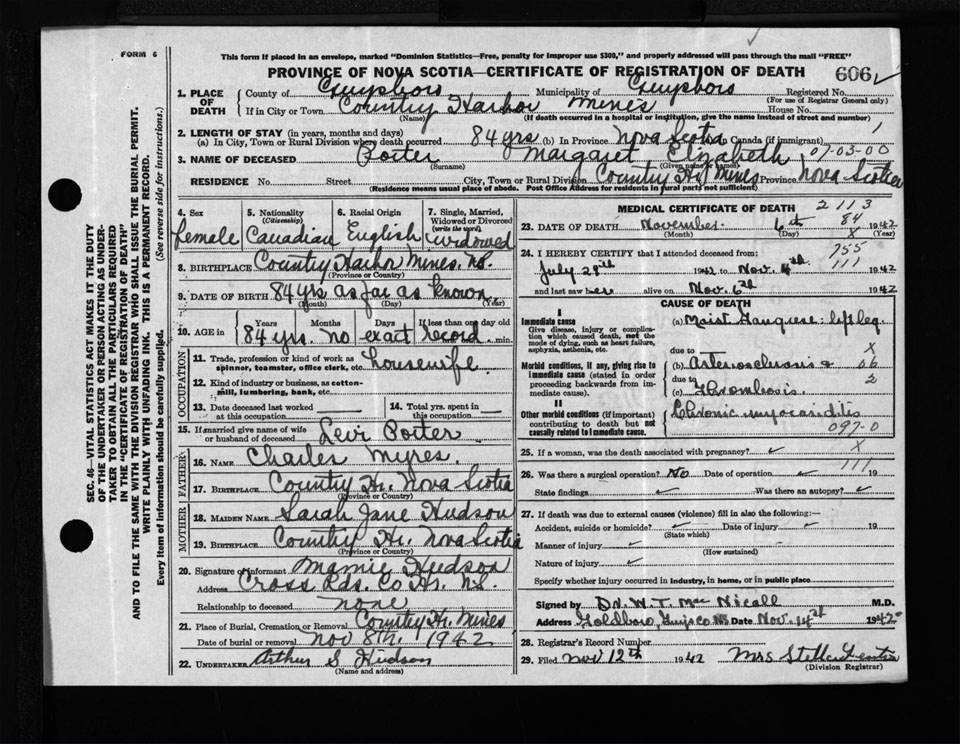 FORM 6
This form if placed in an envelope, marked "Dominion Statistics—Free, penalty for improper use $300," and properly addressed will pass through the mail "FREE"
PROVINCE OF NOVA SCOTIA—CERTIFICATE OF REGISTRATION OF DEATH
606
SEC. 46—VITAL STATISTICS ACT MAKES IT THE DUTY
OF THE UNDERTAKER OR PERSON ACTING AS UNDER-
TAKER TO OBTAIN ALL THE PARTICULARS REQUIRED
IN THE "CERTIFICATE OF REGISTRATION OF DEATH"
AND TO FILE THE SAME WITH THE DIVISION REGISTRAR WHO SHALL ISSUE THE BURIAL PERMIT.
WRITE PLAINLY WITH UNFADING INK. THIS IS A PERMANENT RECORD.
Every item of information should be carefully supplied. (See reverse side for instructions.)
1. PLACE OF DEATH
County of Guysboro Municipality of Guysboro Registered No.
(For use of Registrar General only)
If in City or Town Country Harbor Mines House No.
(Name) (If death occurred in a hospital or institution, give the name instead of street and number)
2. LENGTH OF STAY (in years, months and days)
(a) In City, Town or Rural Division where death occurred 84 yrs (b) In Province Nova Scotia Canada (if immigrant)
3. NAME OF DECEASED Porter Margaret Elizabeth 07-03-00
(Surname) (Given name or names)
RESIDENCE No. Street City, Town or Rural Division Country Hr. Mines Province Nova Scotia
(Residence means usual place of abode. Post Office Address for residents in rural parts not sufficient)
4. Sex
female
5. Nationality (Citizenship)
Canadian
6. Racial Origin
English
7. Single, Married, Widowed or Divorced (write the word)
widowed
8. BIRTHPLACE Country Harbor Mines. N.S.
(Province or Country)
9. DATE OF BIRTH 84 yrs as far as known
(Month) (Day) (Year)
10. AGE in Years Months Days If less than one day old
84 yrs. no exact record. min.
OCCUPATION
11. Trade, profession or kind of work as spinner, teamster, office clerk, etc. Housewife.
12. Kind of industry or business, as cotton-mill, lumbering, bank, etc.
13. Date deceased last worked at this occupation
14. Total yrs. spent in this occupation
15. If married give name of wife or husband of deceased Levi Porter.
FATHER
16. NAME Charles Myres.
17. BIRTHPLACE Country Hr. Nova Scotia
(Province or Country)
MOTHER
18. MAIDEN NAME Sarah Jane Hudson
19. BIRTHPLACE Country Hr. Nova Scotia
(Province or Country)
20. Signature of informant Mamie Hudson
Address Cross Rds. Co Hr. N.S.
Relationship to deceased none
21. Place of Burial, Cremation or Removal Country Hr. Mines
Date of burial or removal Nov 8th. 1942
22. UNDERTAKER Arthur S Hudson
(Name and address)
MEDICAL CERTIFICATE OF DEATH 2113
84
23. DATE OF DEATH November 6th 1942
(Month) (Day) X (Year)
755
24. I HEREBY CERTIFY that I attended deceased from:
111
July 28th 1942 to Nov. 4th 1942
and last saw her alive on Nov. 6th 1942
CAUSE OF DEATH
I
Immediate cause
Give disease, injury or complication which caused death, not the mode of dying, such as heart failure, asphyxia, asthenia, etc.
(a) Moist Gangrene: left leg
due to X
Morbid conditions, if any, giving rise to immediate cause (stated in order proceeding backwards from immediate cause).
(b) Arteriosclerosis & 06
due to 2
(c) Thrombosis.
II
Other morbid conditions (if important) contributing to death but not causally related to immediate cause.
Chronic myocarditis
097-0
25. If a woman, was the death associated with pregnancy? ✓ X
111
26. Was there a surgical operation? No Date of operation ✓ 19
State findings ✓ Was there an autopsy? ✓
27. If death was due to external causes (violence) fill in also the following:—
Accident, suicide or homicide? ✓ Date of injury ✓ 19
(State which)
Manner of injury ✓
(How sustained)
Nature of injury ✓
Specify whether injury occurred in industry, in home, or in public place
Signed by Dr. W. T. MacNicall M.D.
Address Goldboro, Guys Co NS Date Nov. 14th 1942
28. Registrar's Record Number
29. Filed Nov 12th 1942 Mrs Stella
(Division Registrar)